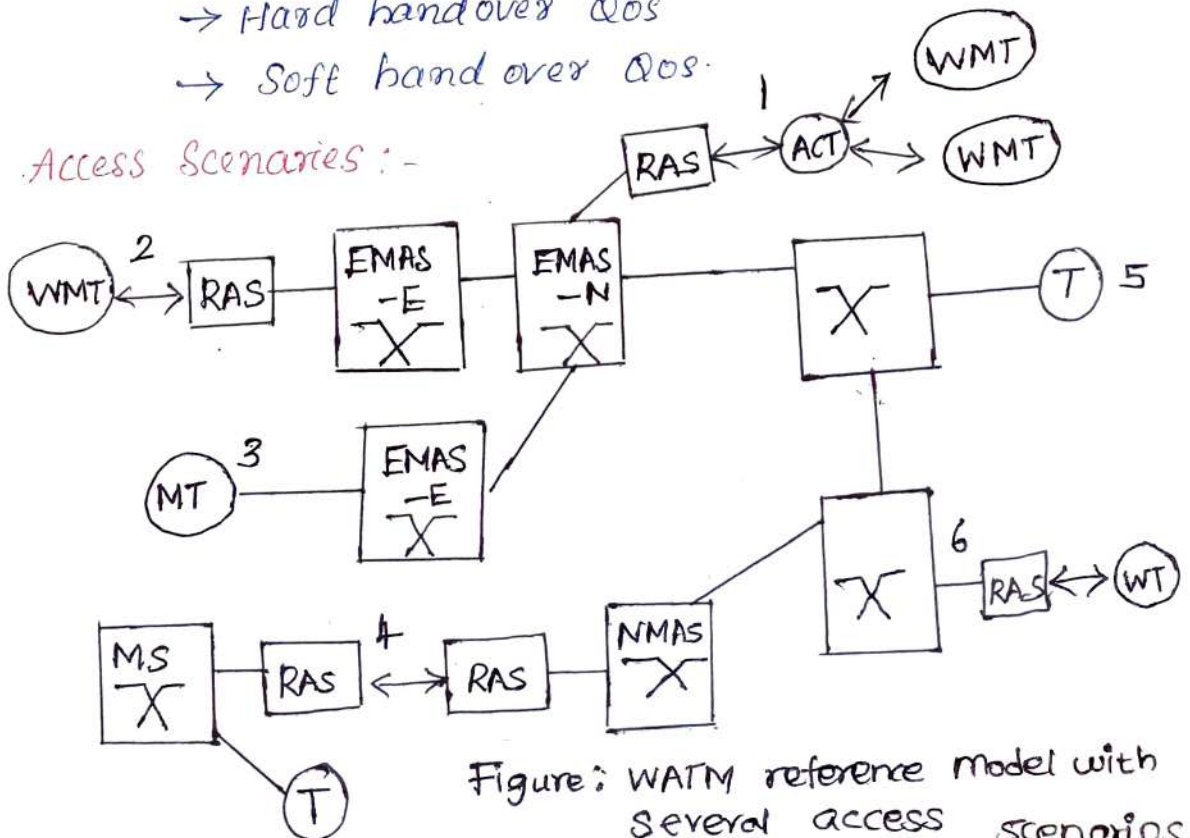 → Hard handover QoS
→ Soft hand over QoS.
Access Scenaries:-
WMT
1
RAS
ACT
WMT
WMT
2
RAS
EMAS
-E
EMAS
-N
T
5
MT
3
EMAS
-E
6
RAS
WT
MS
RAS
4
RAS
NMAS
T
Figure: WATM reference model with
several access scenarios